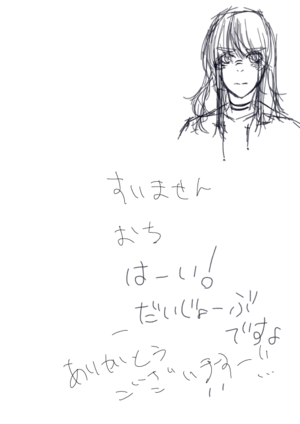 すいません
おち
はーい！
だいじょーぶ
ですよ
ありがとう
ございますー!!